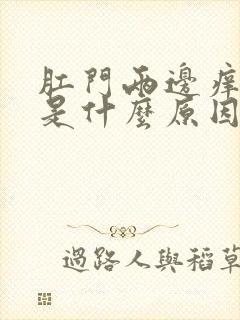 肛門兩邊痒
是什麼原因
過路人與稻草